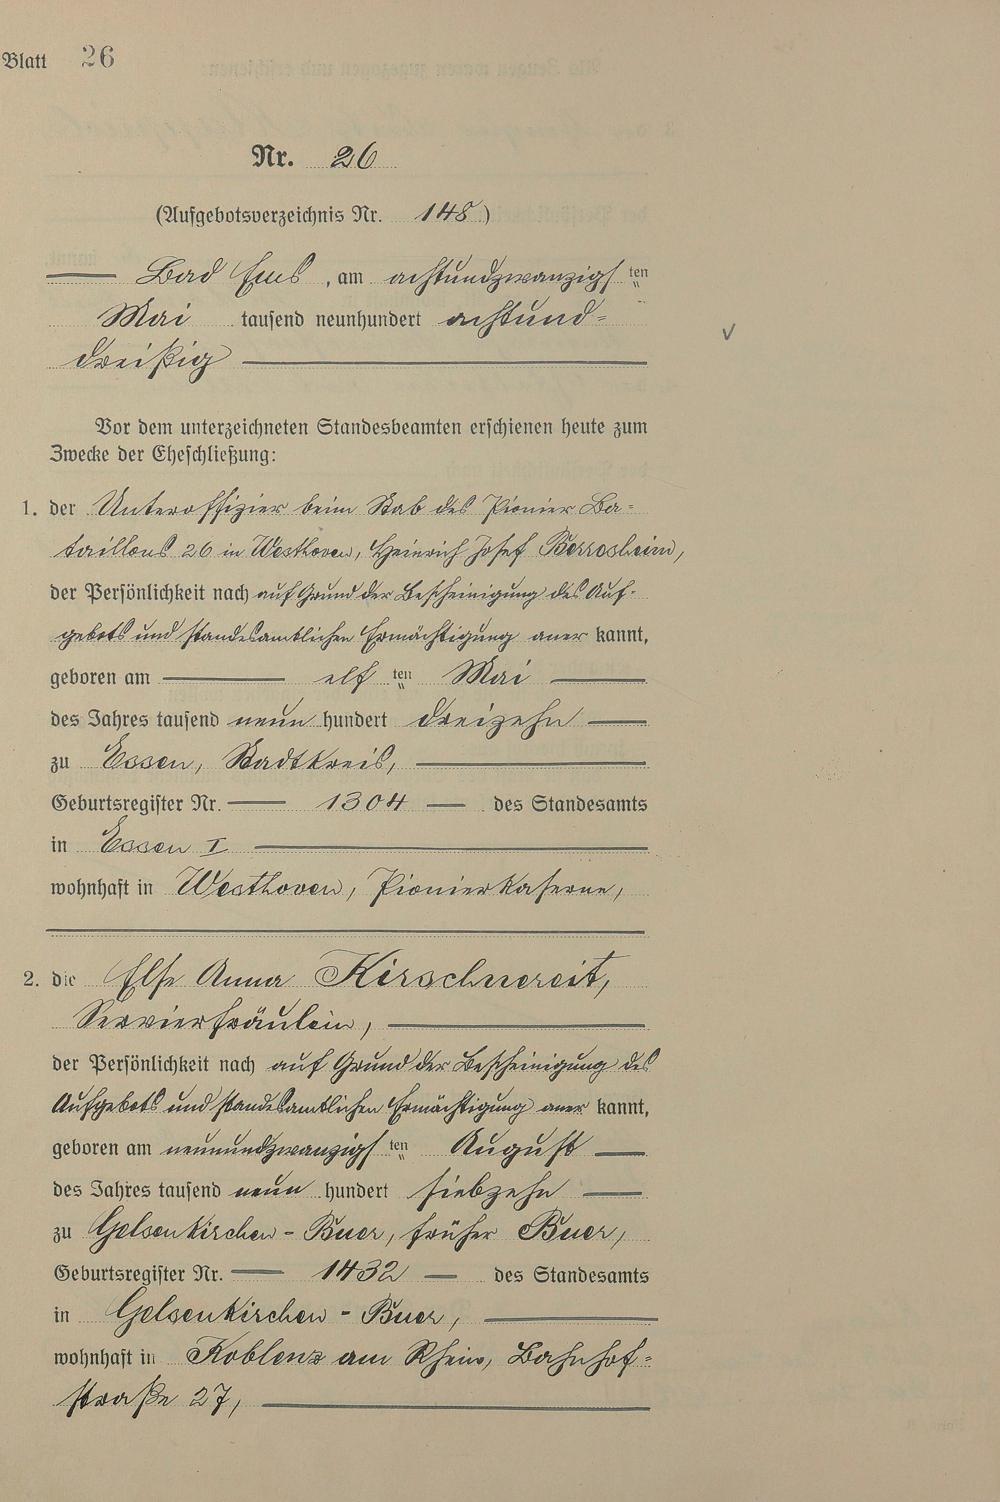 Blatt 26
Nr. 26
(Aufgebotsverzeichnis Nr. 148)
Bad Ems, am achtundzwanzigsten
Mai tausend neunhundert achtund-
dreißig
Vor dem unterzeichneten Standesbeamten erschienen heute zum
Zwecke der Eheschließung:
1. der Unteroffizier beim Stab des Pionier Ba-
taillons 26 in Westhoven, Heinrich Josef Berrosheim,
der Persönlichkeit nach auf Grund der Bescheinigung des Auf-
gebots und standesamtlichen Ermächtigung aner kannt,
geboren am elf ten Mai
des Jahres tausend neun hundert dreizehn
zu Essen, Stadtkreis,
Geburtsregister Nr. 1304 des Standesamts
in Essen I
wohnhaft in Westhoven, Pionierkaserne,
2. die Else Anna Kirschnereit,
Servierfräulein,
der Persönlichkeit nach auf Grund der Bescheinigung des
Aufgebots und standesamtlichen Ermächtigung aner kannt,
geboren am neunundzwanzigs ten August
des Jahres tausend neun hundert siebzehn
zu Gelsenkirchen-Buer, früher Buer,
Geburtsregister Nr. 1432 des Standesamts
in Gelsenkirchen-Buer,
wohnhaft in Koblenz am Rhein, Bahnhof-
straße 27,